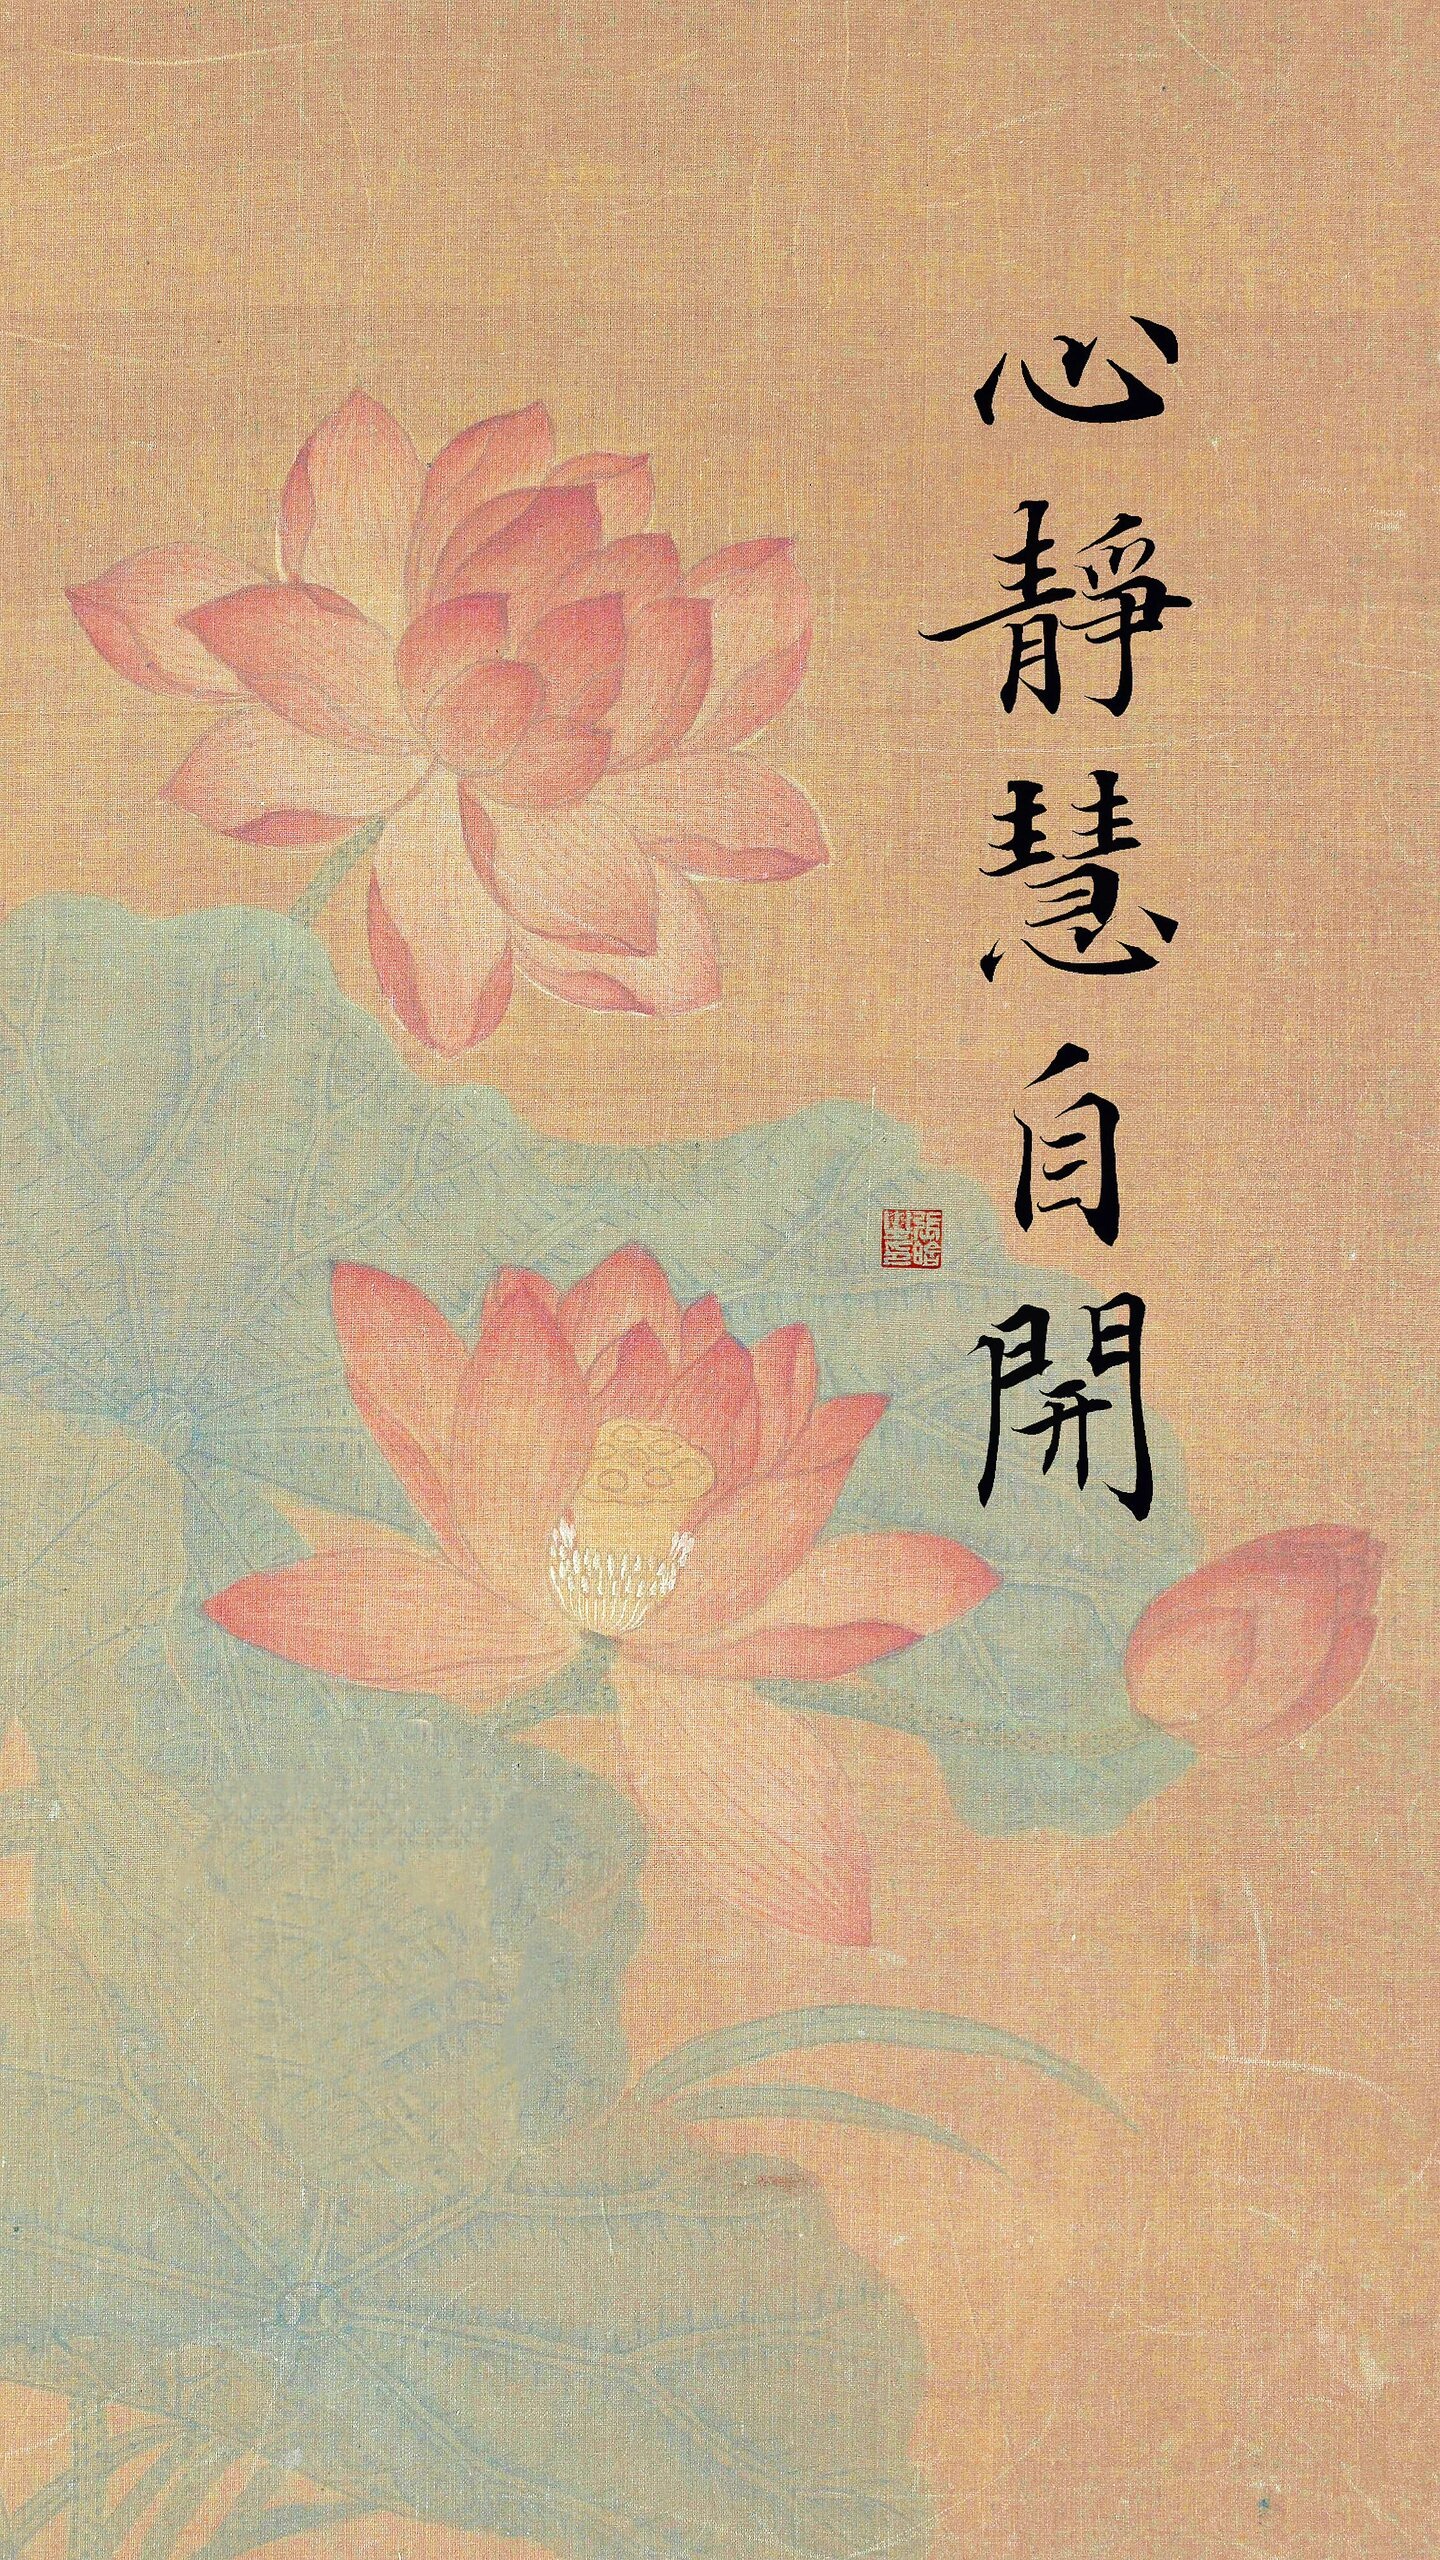 心靜慧自開